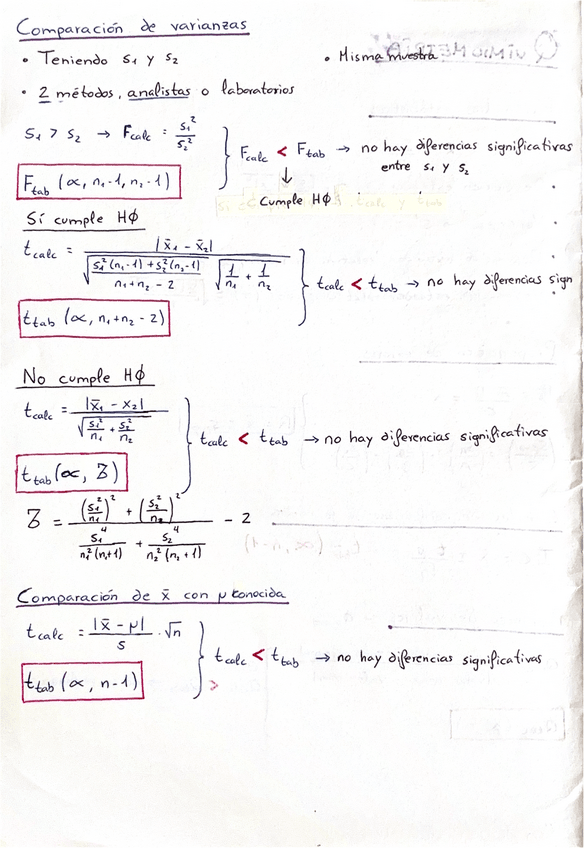 Comparación de varianzas
• Teniendo s₁ y s₂ • Misma muestra
• 2 métodos, analistas o laboratorios
s₁ > s₂ → Fcalc = s₁²/s₂² } Fcalc < Ftab → no hay diferencias significativas
entre s₁ y s₂
↓
Cumple HΦ
Ftab (α, n₁-1, n₂-1)
Sí cumple HΦ
tcalc = |x̄₁ - x̄₂| / √((s₁²(n₁-1) + s₂²(n₂-1)) / (n₁+n₂-2)) √(1/n₁ + 1/n₂) } tcalc < ttab → no hay diferencias sign
ttab (α, n₁+n₂-2)
No cumple HΦ
tcalc = |x̄₁ - x₂| / √(s₁²/n₁ + s₂²/n₂) } tcalc < ttab → no hay diferencias significativas
ttab (α, Z)
Z = ((s₁²/n₁)² + (s₂²/n₂)²) / (s₁⁴/(n₁²(n₁+1)) + s₂⁴/(n₂²(n₂+1))) - 2
Comparación de x̄ con μ conocida
tcalc = |x̄ - μ|/s · √n } tcalc < ttab → no hay diferencias significativas
>
ttab (α, n-1)